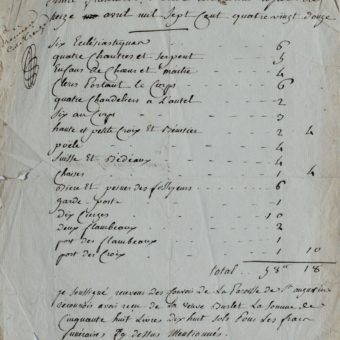 avril mil Sept Cent quatre vingt douze
Six Ecclesiastiques - - - 6
quatre Chantres et Serpent - - - 5
Enfans de Chœur et maitre - - - 4
Clercs Portant le Corps - - - 6
quatre Chandeliers a l'autel - - - 2
Six au Corps - - - 3
haute et petite Croix et Benitier - - - 2 4
poële - - - 4
Suisse et Bedeaux - - - 4
Chaises - - - 1 4
et peines des fossoyeurs - - - 6
garde porte - - - 1
Dix Cierges - - - 10
deux flambeaux - - - 2
port des flambeaux - - - 1
port des Croix - - - 1 10
total 58# 18
je soussigné receveur des de La Paroisse de St
reconnois avoir reçu de la veuve La Somme de
Cinquante huit Livres dix huit Sols Pour Les fraix
funeraires Cy dessus Mentionnés